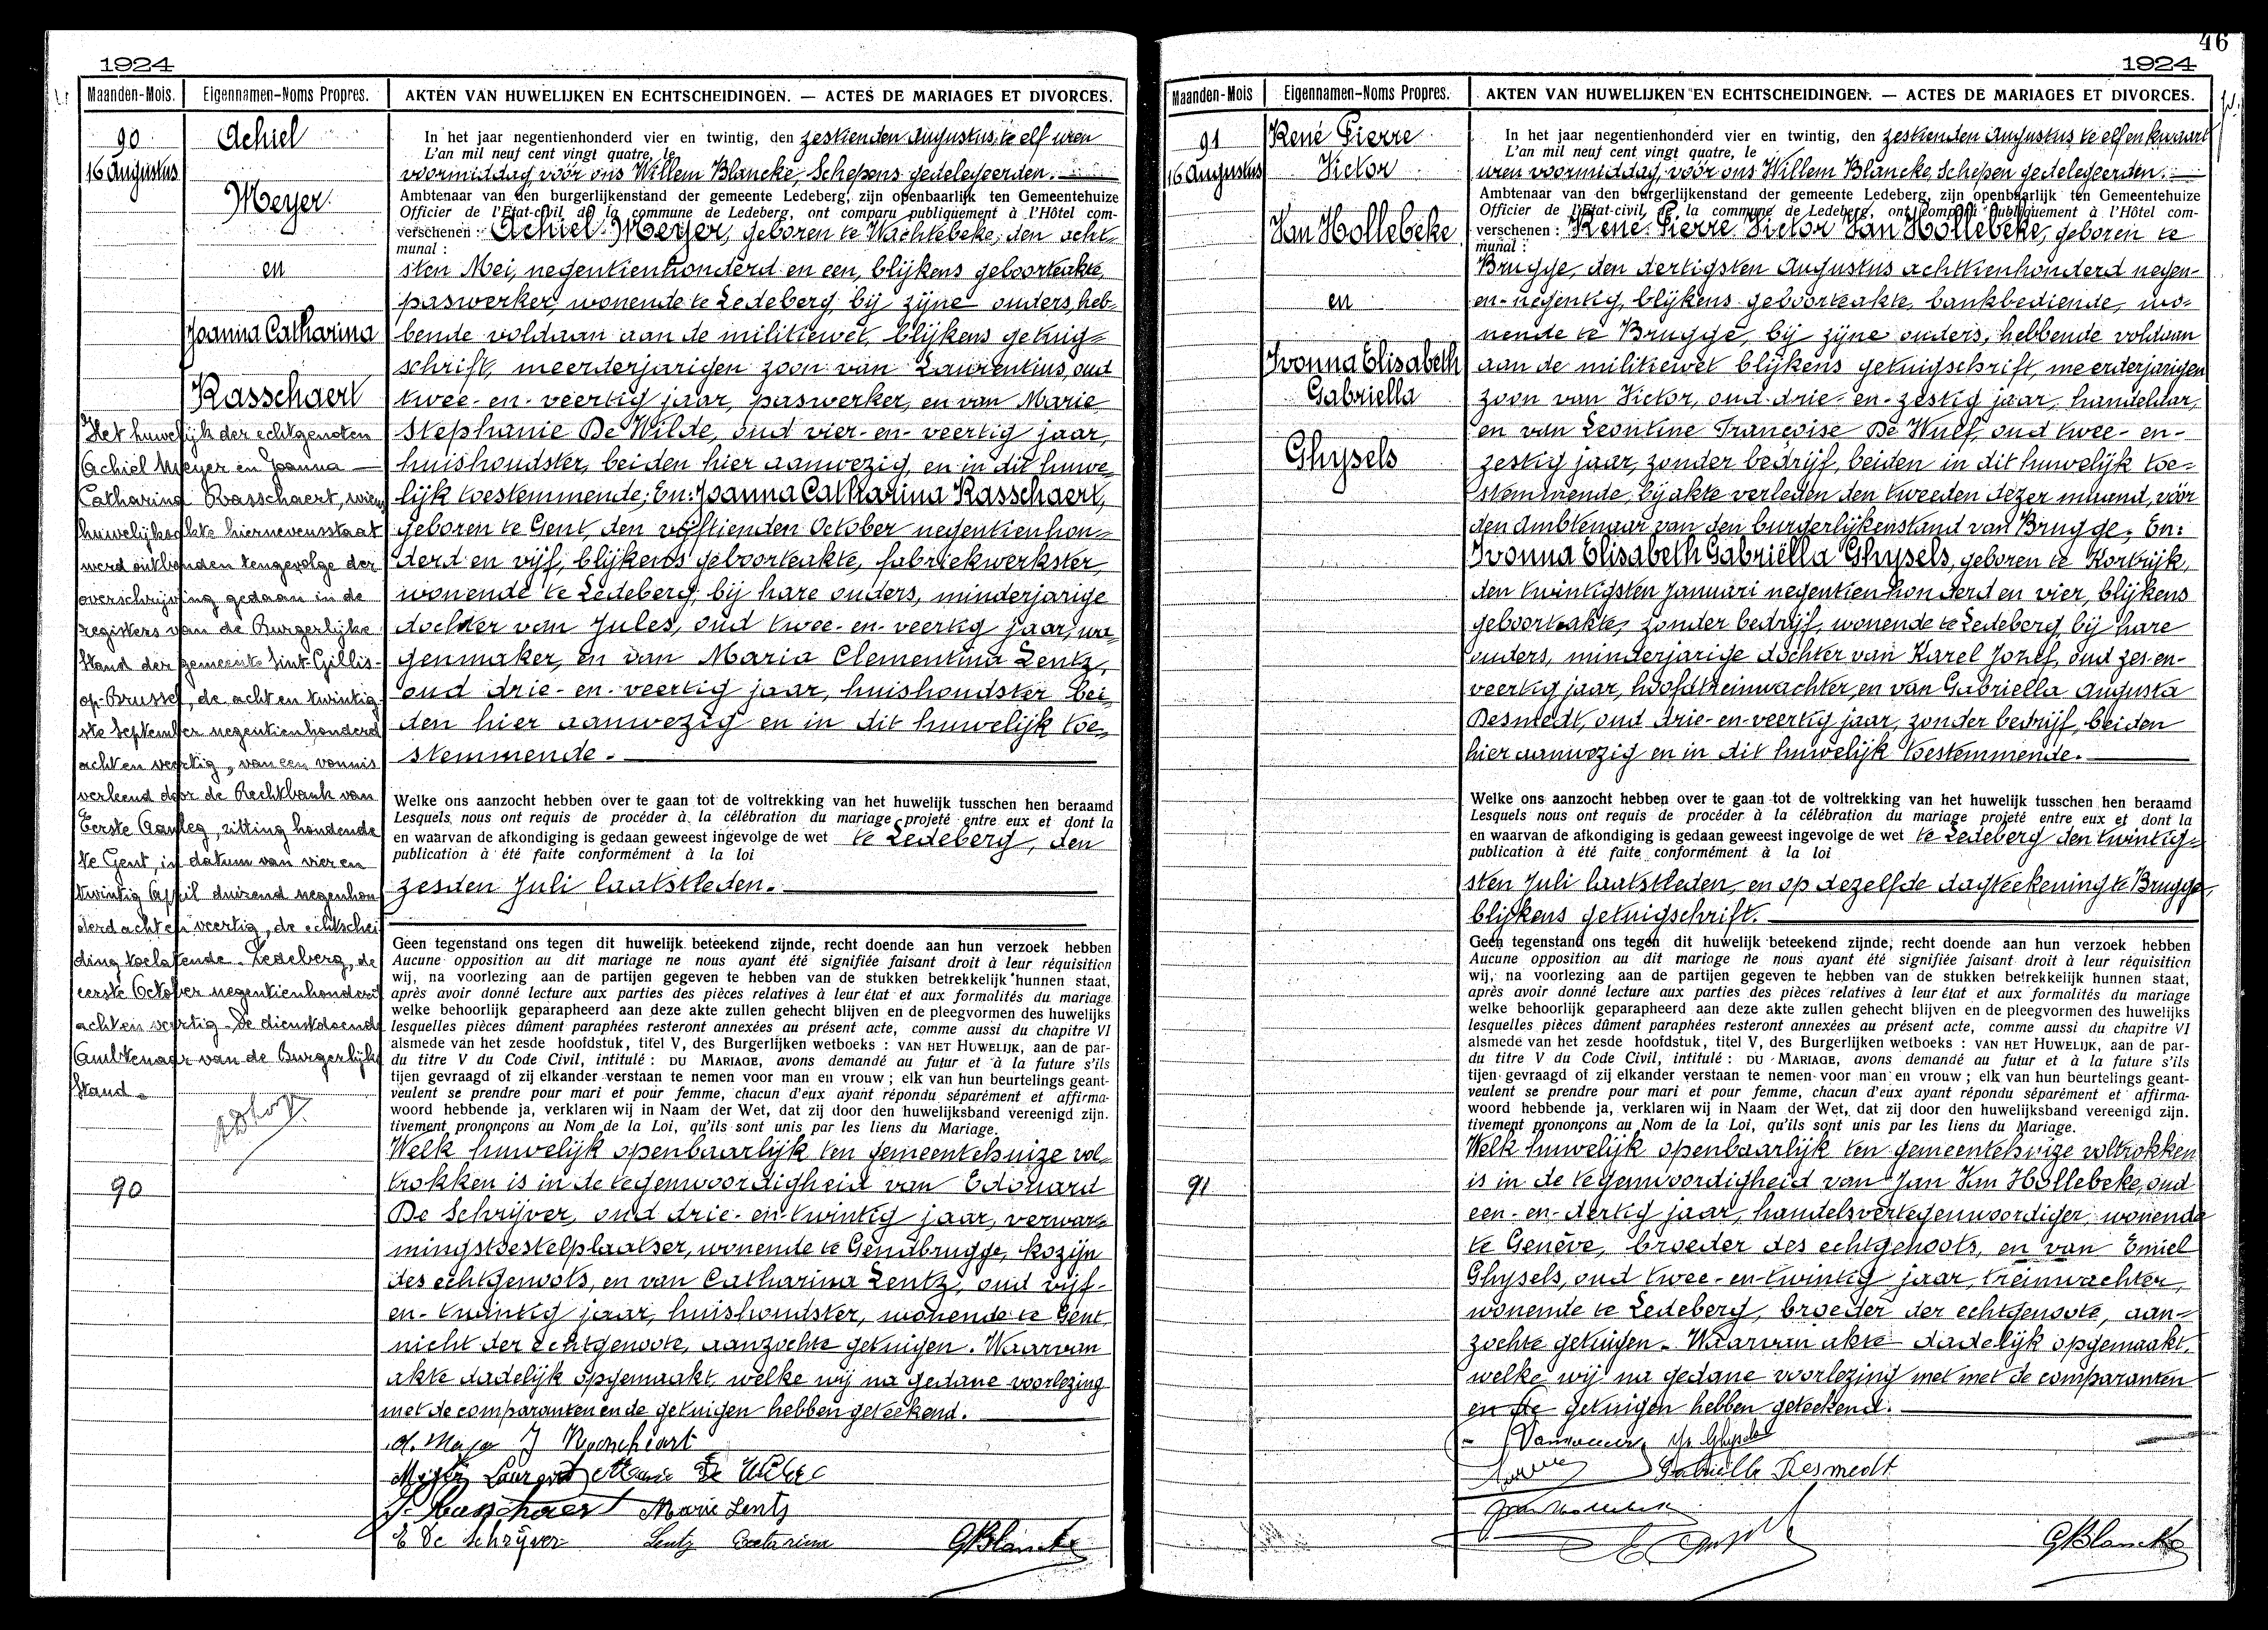 1924
Maanden-Mois.
Eigennamen-Noms Propres.
AKTEN VAN HUWELIJKEN EN ECHTSCHEIDINGEN. — ACTES DE MARIAGES ET DIVORCES.
90
16 Augustus
Achiel
Meyer
en
Joanna Catharina
Rasschaert
Het huwelijk der echtgenoten
Achiel Meyer en Joanna —
Catharina Rasschaert, wiens
huwelijksakte hiernevensstaat
werd ontbonden tengevolge der
overschrijving gedaan in de
registers van de Burgerlijke
Stand der gemeente Sint-Gillis-
op-Brussel, de acht en twintig-
ste September negentienhonderd
acht en veertig, van een vonnis
verleend door de Rechtbank van
Eerste Aanleg, zitting houdende
te Gent, in datum van vier en
twintig April duizend negenhon-
derd acht en veertig, de echtschei-
ding toelatende. Ledeberg, de
eerste October negentienhonderd
acht en veertig. De dienstdoende
Ambtenaar van de Burgerlijke
Stand.
90
In het jaar negentienhonderd vier en twintig, den zestienden Augustus, te elf uren
L'an mil neuf cent vingt quatre, le
voormiddag, vóór ons Willem Blancke, Schepens gedelegeerden.
Ambtenaar van den burgerlijkenstand der gemeente Ledeberg, zijn openbaarlijk ten Gemeentehuize
Officier de l'Etat-civil de la commune de Ledeberg, ont comparu publiquement à l'Hôtel com-
verschenen : Achiel Meyer, geboren te Wachtebeke, den acht-
munal :
sten Mei, negentienhonderd en een, blijkens geboorteakte,
paswerker, wonende te Ledeberg, bij zijne ouders, heb-
bende voldaan aan de militiewet, blijkens getuig-
schrift, meerderjarigen zoon van Laurentius, oud
twee-en-veertig jaar, paswerker, en van Marie
Stephanie De Wilde, oud vier-en-veertig jaar,
huishoudster, beiden hier aanwezig, en in dit huwe-
lijk toestemmende; En: Joanna Catharina Rasschaert,
geboren te Gent, den vijftienden October negentienhon-
derd en vijf, blijkens geboorteakte, fabriekwerkster,
wonende te Ledeberg, bij hare ouders, minderjarige
dochter van Jules, oud twee-en-veertig jaar, wa-
genmaker, en van Maria Clementina Lentz,
oud drie-en-veertig jaar, huishoudster bei-
den hier aanwezig en in dit huwelijk toe-
stemmende.
Welke ons aanzocht hebben over te gaan tot de voltrekking van het huwelijk tusschen hen beraamd
Lesquels nous ont requis de procéder à la célébration du mariage projeté entre eux et dont la
en waarvan de afkondiging is gedaan geweest ingevolge de wet te Ledeberg, den
publication à été faite conformément à la loi
zesden Juli laatstleden.
Geen tegenstand ons tegen dit huwelijk beteekend zijnde, recht doende aan hun verzoek hebben
Aucune opposition au dit mariage ne nous ayant été signifiée faisant droit à leur réquisition
wij, na voorlezing aan de partijen gegeven te hebben van de stukken betrekkelijk hunnen staat,
après avoir donné lecture aux parties des pièces relatives à leur état et aux formalités du mariage
welke behoorlijk geparapheerd aan deze akte zullen gehecht blijven en de pleegvormen des huwelijks
lesquelles pièces dûment paraphées resteront annexées au présent acte, comme aussi du chapitre VI
alsmede van het zesde hoofdstuk, titel V, des Burgerlijken wetboeks : VAN HET HUWELIJK, aan de par-
du titre V du Code Civil, intitulé : DU MARIAGE, avons demandé au futur et à la future s'ils
tijen gevraagd of zij elkander verstaan te nemen voor man en vrouw ; elk van hun beurtelings geant-
veulent se prendre pour mari et pour femme, chacun d'eux ayant répondu séparément et affirma-
woord hebbende ja, verklaren wij in Naam der Wet, dat zij door den huwelijksband vereenigd zijn.
tivement prononçons au Nom de la Loi, qu'ils sont unis par les liens du Mariage.
Welk huwelijk openbaarlijk ten gemeentehuize vol-
trokken is in de tegenwoordigheid van Edouard
De Schrijver, oud drie-en-twintig jaar, verwar-
mingstoestelplaatser, wonende te Gendbrugge, kozijn
des echtgenoots, en van Catharina Lentz, oud vijf-
en-twintig jaar, huishoudster, wonende te Gent,
nicht der echtgenoote, aanzochte getuigen. Waarvan
akte dadelijk opgemaakt, welke wij na gedane voorlezing
met de comparanten en de getuigen hebben geteekend.
Meyer Laurent Marie De Wilde
Marie Lentz
E De Schrijver Lentz Catarina GBlancke
46
1924
Maanden-Mois
Eigennamen-Noms Propres.
AKTEN VAN HUWELIJKEN EN ECHTSCHEIDINGEN. — ACTES DE MARIAGES ET DIVORCES.
91
16 Augustus
René Pierre
Victor
Van Hollebeke
en
Ivonna Elisabeth
Gabriella
Ghysels
91
In het jaar negentienhonderd vier en twintig, den zestienden Augustus te elf en kwaart
L'an mil neuf cent vingt quatre, le
uren voormiddag, vóór ons Willem Blancke, Schepen gedelegeerden.
Ambtenaar van den burgerlijkenstand der gemeente Ledeberg, zijn openbaarlijk ten Gemeentehuize
Officier de l'Etat-civil de la commune de Ledeberg, ont comparu publiquement à l'Hôtel com-
verschenen : René Pierre Victor Van Hollebeke, geboren te
munal :
Brugge, den dertigsten Augustus achttienhonderd negen-
en-negentig, blijkens geboorteakte, bankbediende, wo-
nende te Brugge, bij zijne ouders, hebbende voldaan
aan de militiewet blijkens getuigschrift, meerderjarigen
zoon van Victor, oud drie-en-zestig jaar, handelaar,
en van Leontine Françoise De Wulf, oud twee-en-
zestig jaar, zonder bedrijf, beiden in dit huwelijk toe-
stemmende bij akte verleden den tweeden dezer maand, vóór
den Ambtenaar van den burgerlijkenstand van Brugge; En:
Ivonna Elisabeth Gabriëlla Ghysels, geboren te Kortrijk,
den twintigsten Januari negentienhonderd en vier, blijkens
geboorteakte, zonder bedrijf, wonende te Ledeberg, bij hare
ouders, minderjarige dochter van Karel Jozef, oud zes-en-
veertig jaar, hoofdtreinwachter, en van Gabriella Augusta
Desmedt, oud drie-en-veertig jaar, zonder bedrijf, beiden
hier aanwezig en in dit huwelijk toestemmende.
Welke ons aanzocht hebben over te gaan tot de voltrekking van het huwelijk tusschen hen beraamd
Lesquels nous ont requis de procéder à la célébration du mariage projeté entre eux et dont la
en waarvan de afkondiging is gedaan geweest ingevolge de wet te Ledeberg den twintig-
publication à été faite conformément à la loi
sten Juli laatstleden, en op dezelfde dagteekening te Brugge,
blijkens getuigschrift.
Geen tegenstand ons tegen dit huwelijk beteekend zijnde, recht doende aan hun verzoek hebben
Aucune opposition au dit mariage ne nous ayant été signifiée faisant droit à leur réquisition
wij, na voorlezing aan de partijen gegeven te hebben van de stukken betrekkelijk hunnen staat,
après avoir donné lecture aux parties des pièces relatives à leur état et aux formalités du mariage
welke behoorlijk geparapheerd aan deze akte zullen gehecht blijven en de pleegvormen des huwelijks
lesquelles pièces dûment paraphées resteront annexées au présent acte, comme aussi du chapitre VI
alsmede van het zesde hoofdstuk, titel V, des Burgerlijken wetboeks : VAN HET HUWELIJK, aan de par-
du titre V du Code Civil, intitulé : DU MARIAGE, avons demandé au futur et à la future s'ils
tijen gevraagd of zij elkander verstaan te nemen voor man en vrouw ; elk van hun beurtelings geant-
veulent se prendre pour mari et pour femme, chacun d'eux ayant répondu séparément et affirma-
woord hebbende ja, verklaren wij in Naam der Wet, dat zij door den huwelijksband vereenigd zijn.
tivement prononçons au Nom de la Loi, qu'ils sont unis par les liens du Mariage.
Welk huwelijk openbaarlijk ten gemeentehuize voltrokken
is in de tegenwoordigheid van Jan Van Hollebeke, oud
een-en-dertig jaar, handelsvertegenwoordiger, wonende
te Genève, broeder des echtgenoots, en van Emiel
Ghysels, oud twee-en-twintig jaar, treinwachter,
wonende te Ledeberg, broeder der echtgenoote, aan-
zochte getuigen. Waarvan akte dadelijk opgemaakt,
welke wij na gedane voorlezing met met de comparanten
en de getuigen hebben geteekend.
Gabrielle Desmedt
GBlancke